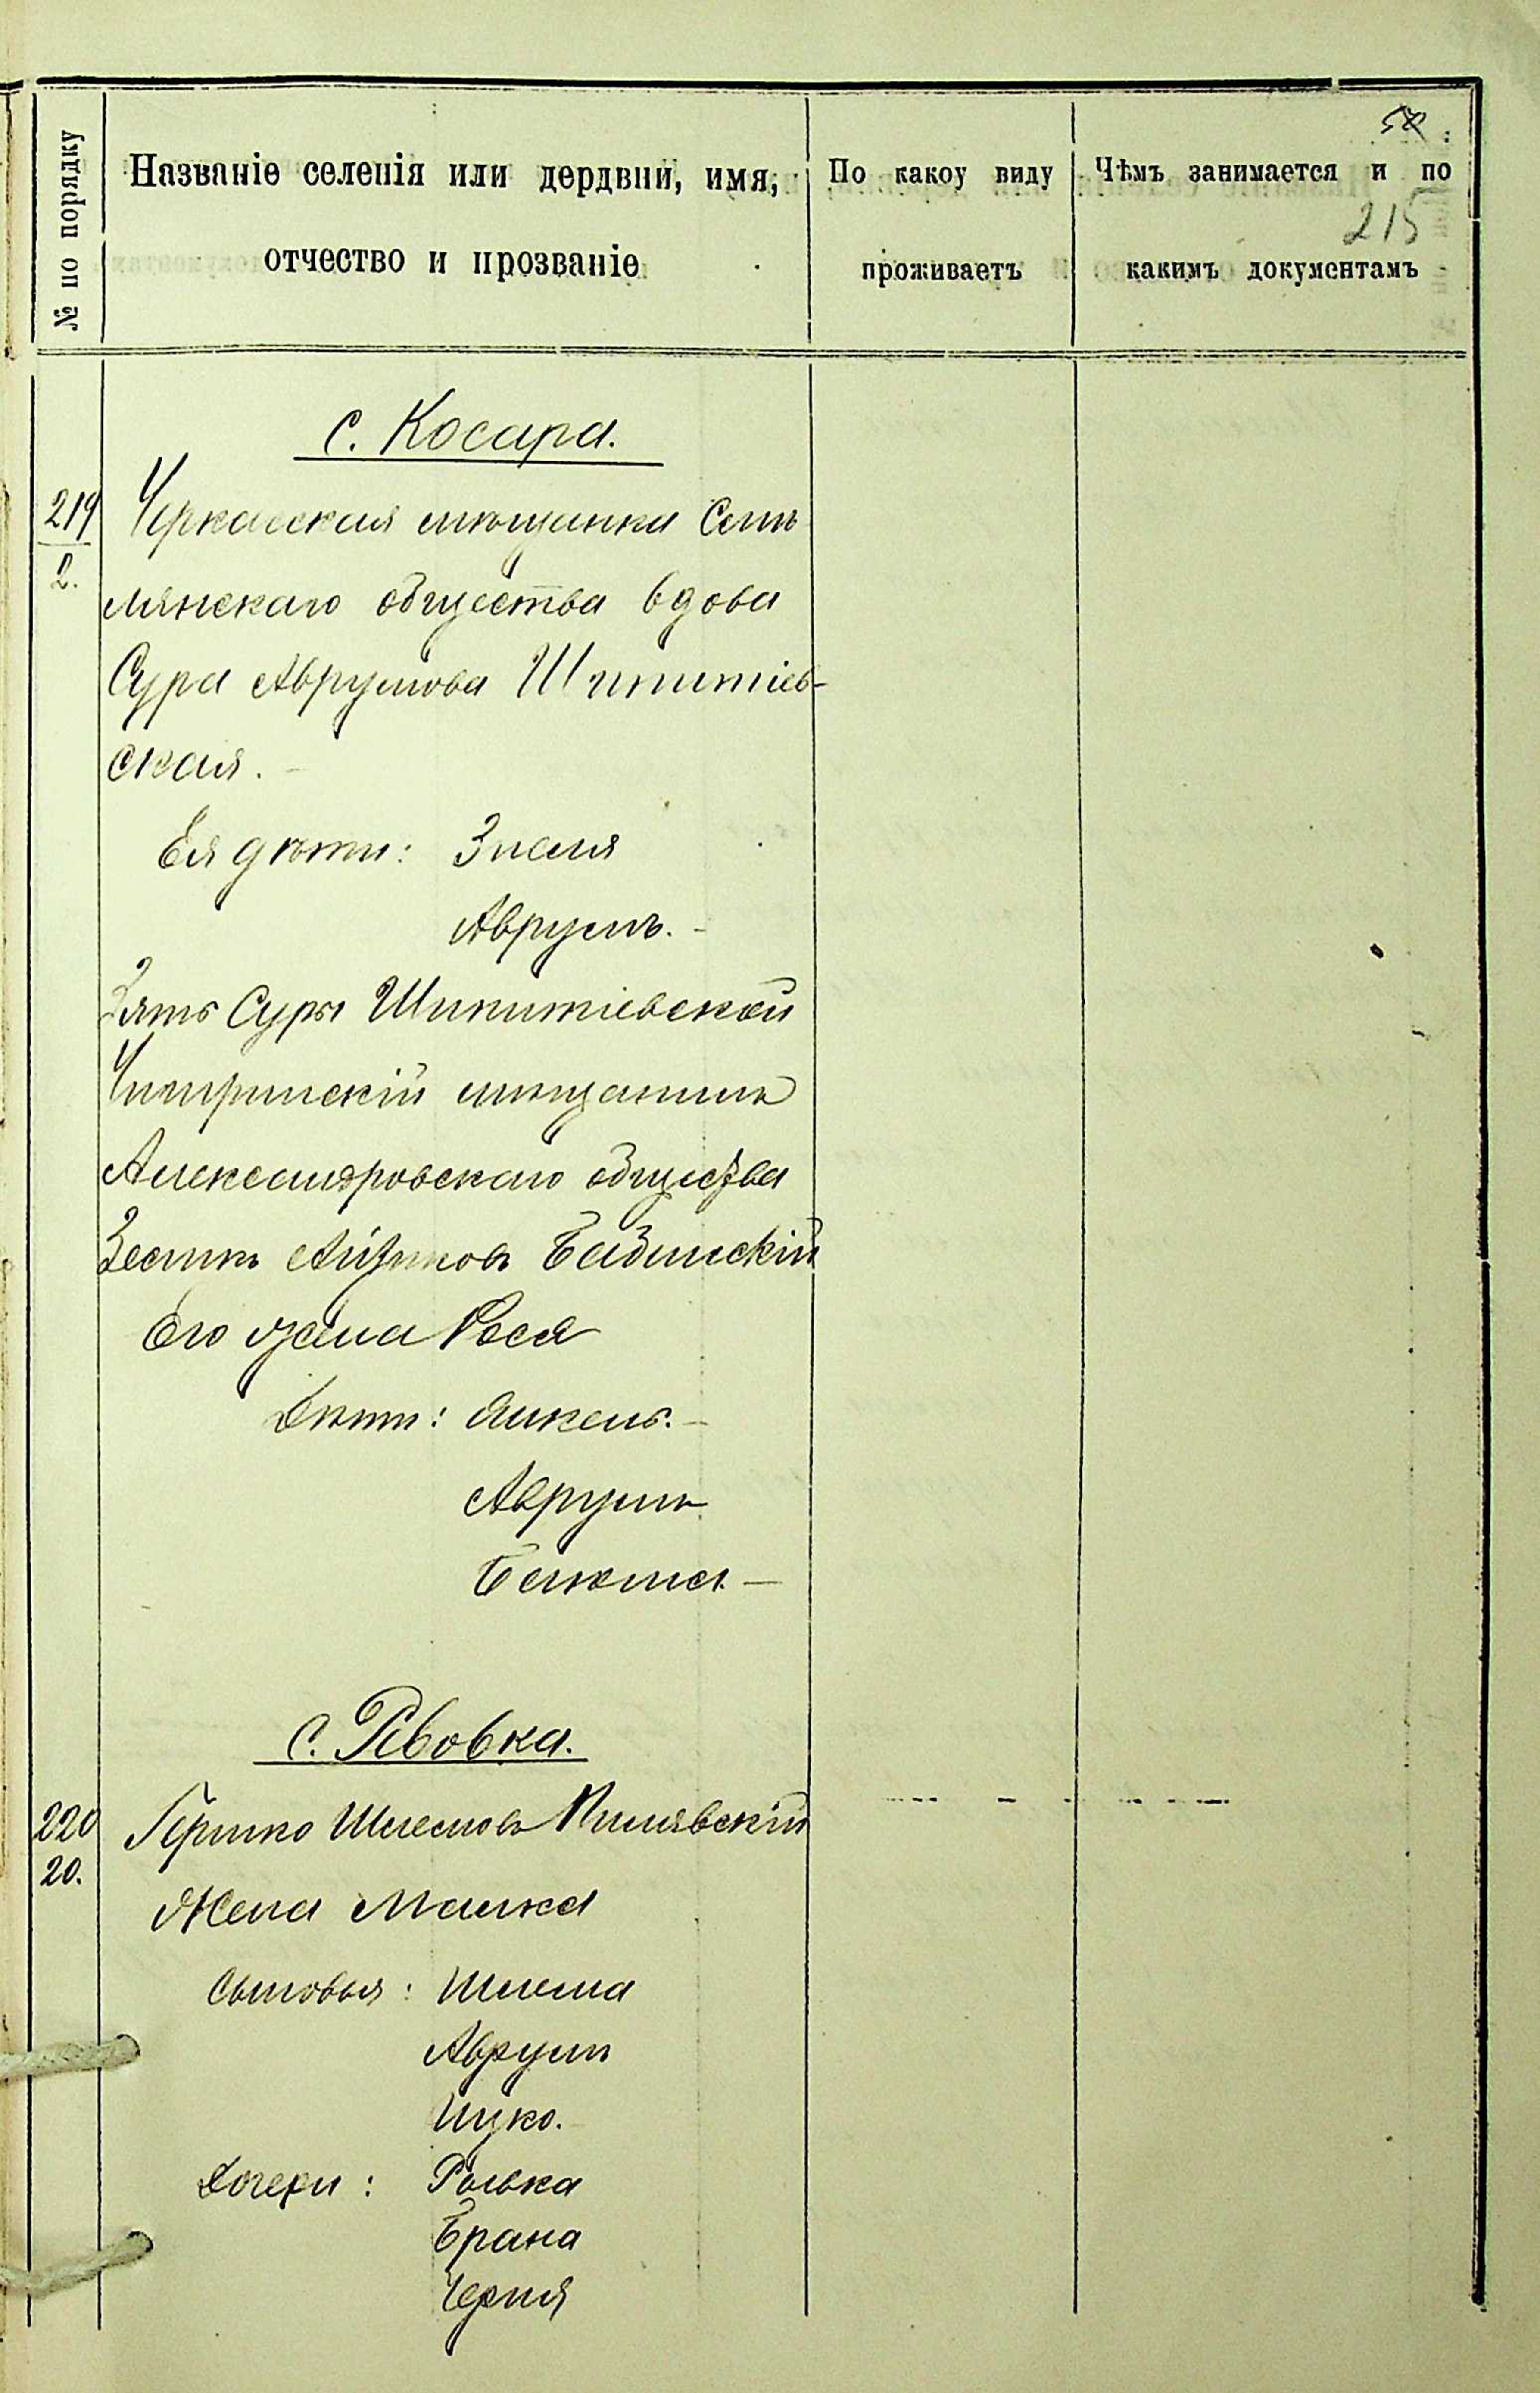 58
215
№ по порядку
Названіе селенія или дердвни, имя,
отчество и прозваніе
По какоу виду
проживаетъ
Чѣмъ занимается и по
какимъ документамъ
с. Косара.
219
2.
Черкасская мѣщанка Смѣ
лянскаго общества вдова
Сура Аврумова Шпитіев-
ская.
Ея дѣти: Знамя
Аврумъ.
Зять Суры Шпитіевской
Чигиринскій мѣщанинъ
Александровскаго общества
Зейликъ Айзиковъ
Его жена Рося
Дѣти: Янкель.
Аврумъ
с. Ревовка.
220
20.
Гершко Шлемовъ Пилявскій
Жена Малка
Сыновья: Шлема
Аврумъ
Ицко.
Дочери: Рывка
Брана
Черня